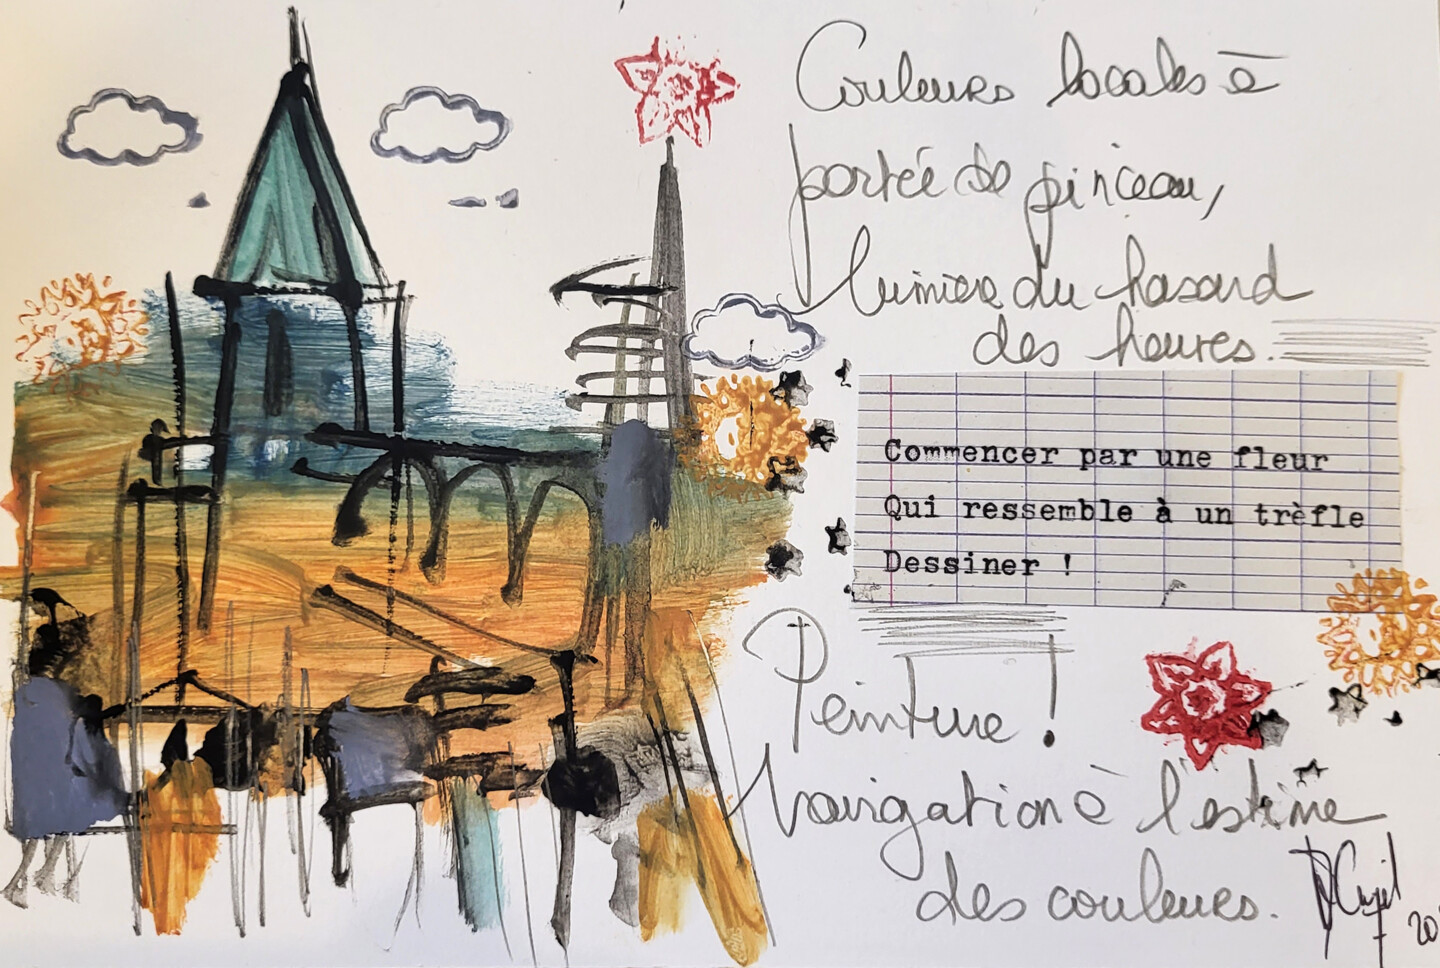 Couleurs locales à
portée de pinceau,
lumière du hasard
des heures.
Commencer par une fleur
Qui ressemble à un trèfle
Dessiner !
Peinture !
Navigation à l'estime
des couleurs.